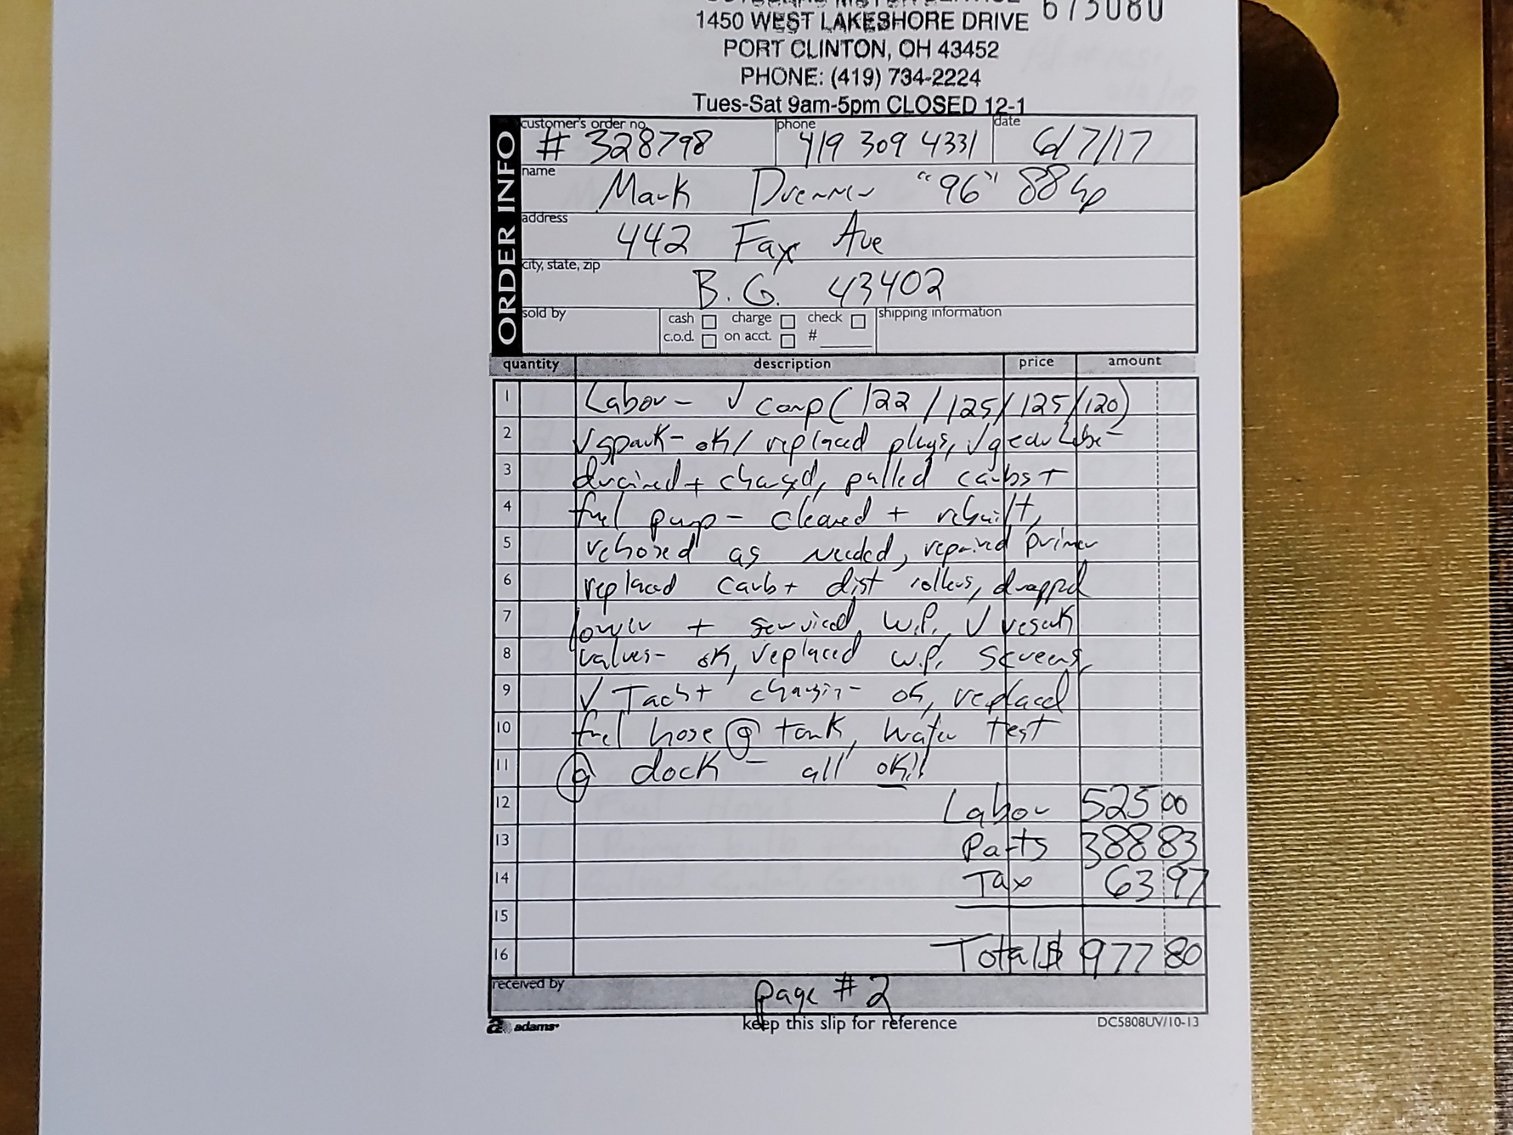 673080
1450 WEST LAKESHORE DRIVE
PORT CLINTON, OH 43452
PHONE: (419) 734-2224
Tues-Sat 9am-5pm CLOSED 12-1
ORDER INFO
customer's order no. phone date
# 328798 419 309 4331 6/7/17
name
Mark "96" 88 hp
address
442 Fax Ave
city, state, zip
B.G. 43402
sold by cash charge check shipping information
c.o.d. on acct. #
quantity description price amount
1 Labor - √ comp (122/125/125/120)
2 √ spark - ok/ replaced plugs, √ gear lube -
3 drained + changed, pulled carbs +
4 fuel pump - cleaned + rebuilt,
5 rehosed as needed, repaired primer
6 replaced carb + dist rollers, dropped
7 lower + serviced W.P., √
8 valves - ok, replaced w.p. screens,
9 √ Tach + charging - ok, replaced
10 fuel hose @ tank, water test
11 @ dock - all ok!!
12 Labor 525 00
13 Parts 388 83
14 Tax 63 97
15
16 Total $ 977 80
received by page # 2
a adams keep this slip for reference DC5808UV/10-13